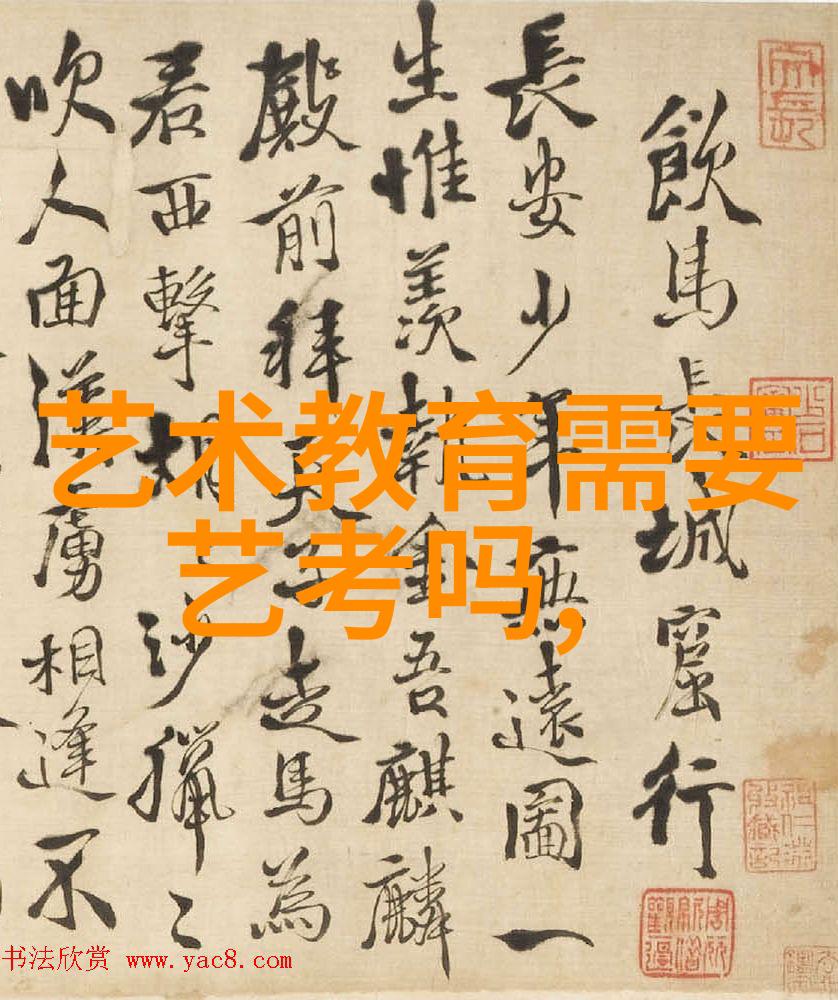 飲馬長城窟行
長安少年無遠圖一
生惟羨執金吾麒麟
殿前拜天子走馬為
君西擊胡沙獵〻
吹人面漢虜相逢不
艺术教育需要
艺考吗,
书法欣赏 www.yac8.com